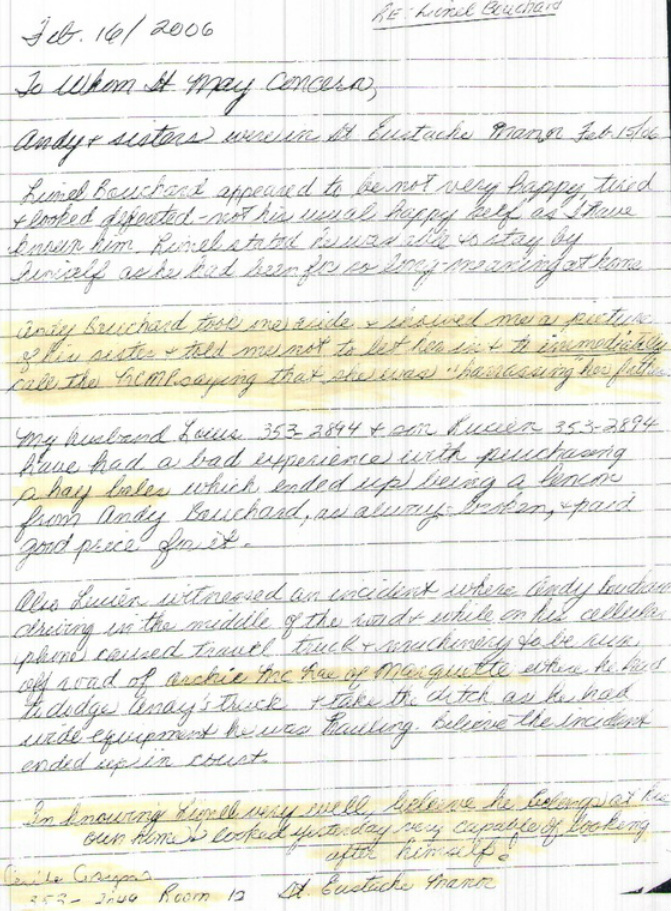 RE: Lionel Bouchard
Feb. 16/2006
To Whom It May Concern,
Andy + sisters were in St Eustache Manor Feb 15/06
Lionel Bouchard appeared to be not very happy tired
+ looked defeated - not his usual happy self as I have
known him. Lionel stated he was able to stay by
himself as he had been for so long - meaning at home
Andy Bouchard took me aside + showed me a picture
of his sister + told me not to let her in + to immediately
call the RCMP saying that she was "harrassing" her father
My husband Louis 353-2894 + son Lucien 353-2894
have had a bad experience with purchasing
a hay baler which ended up being a lemon
from Andy Bouchard, as always broken, + paid
good price for it.
Also Lucien witnessed an incident where Andy Bouchard
driving in the middle of the road + while on his cellular
phone caused truck + machinery to be run
off road of Archie Mc Rae of Marquette where he had
to dodge Andy's truck + take the ditch as he had
wide equipment he was hauling. Believe the incident
ended up in court.
In knowing Lionel very well, believe he belongs at his
own home & looked yesterday very capable of looking
after himself.
353- Room 12 St. Eustache Manor